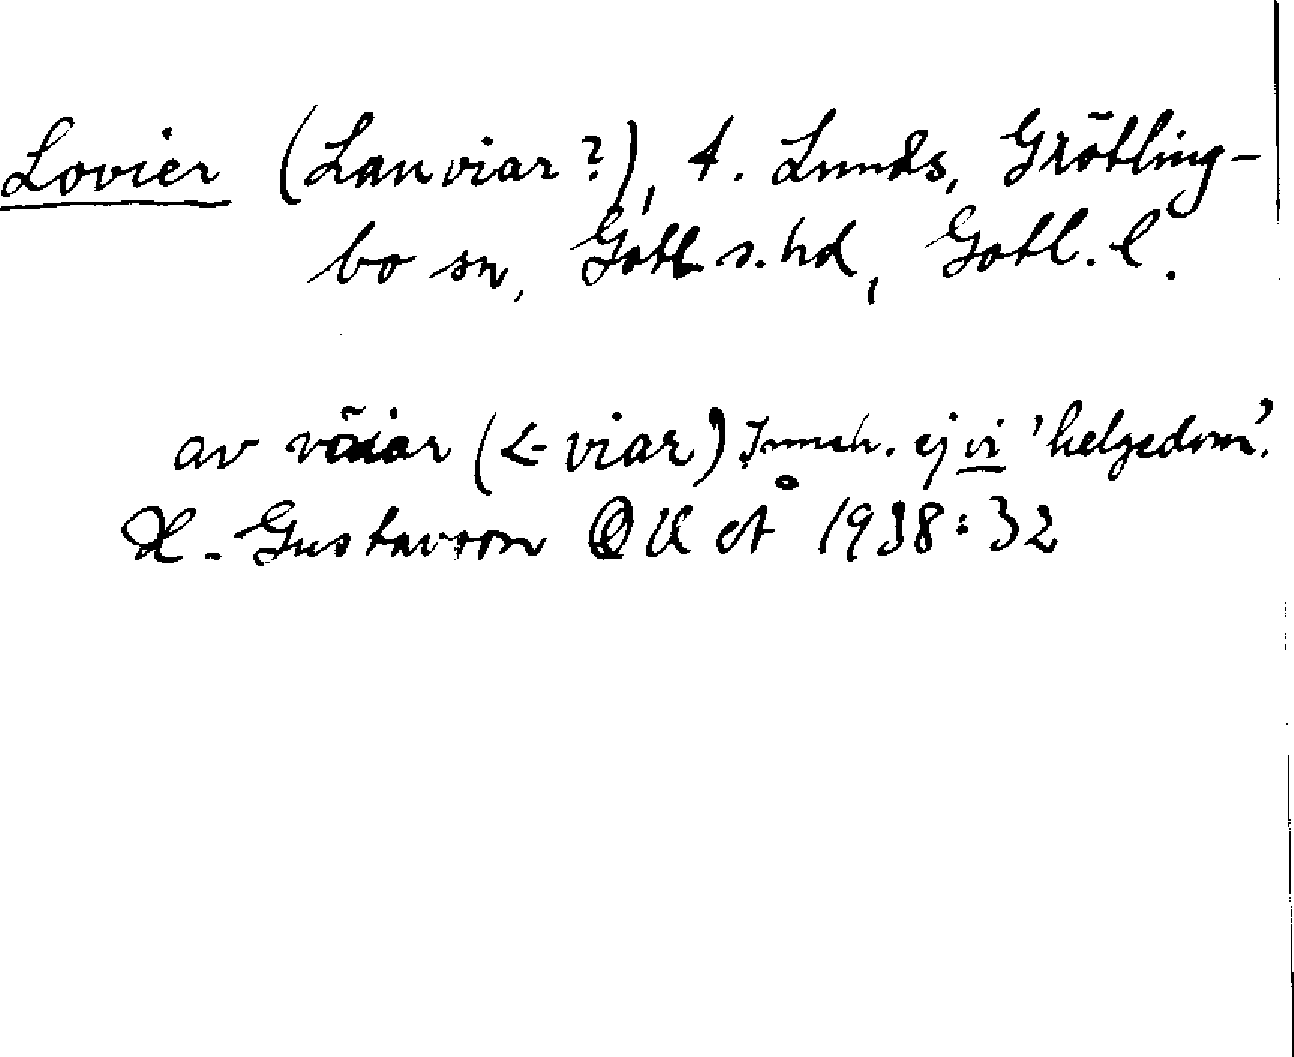 Lovier (Lauviar?), t. Lunds, Grötling-
bo sn, Gotl. s. hd, Gotl. l.
av vöiar (< viar) Inneh. ej vi 'helgedom'.
H. Gustavson OUÅ 1938:32